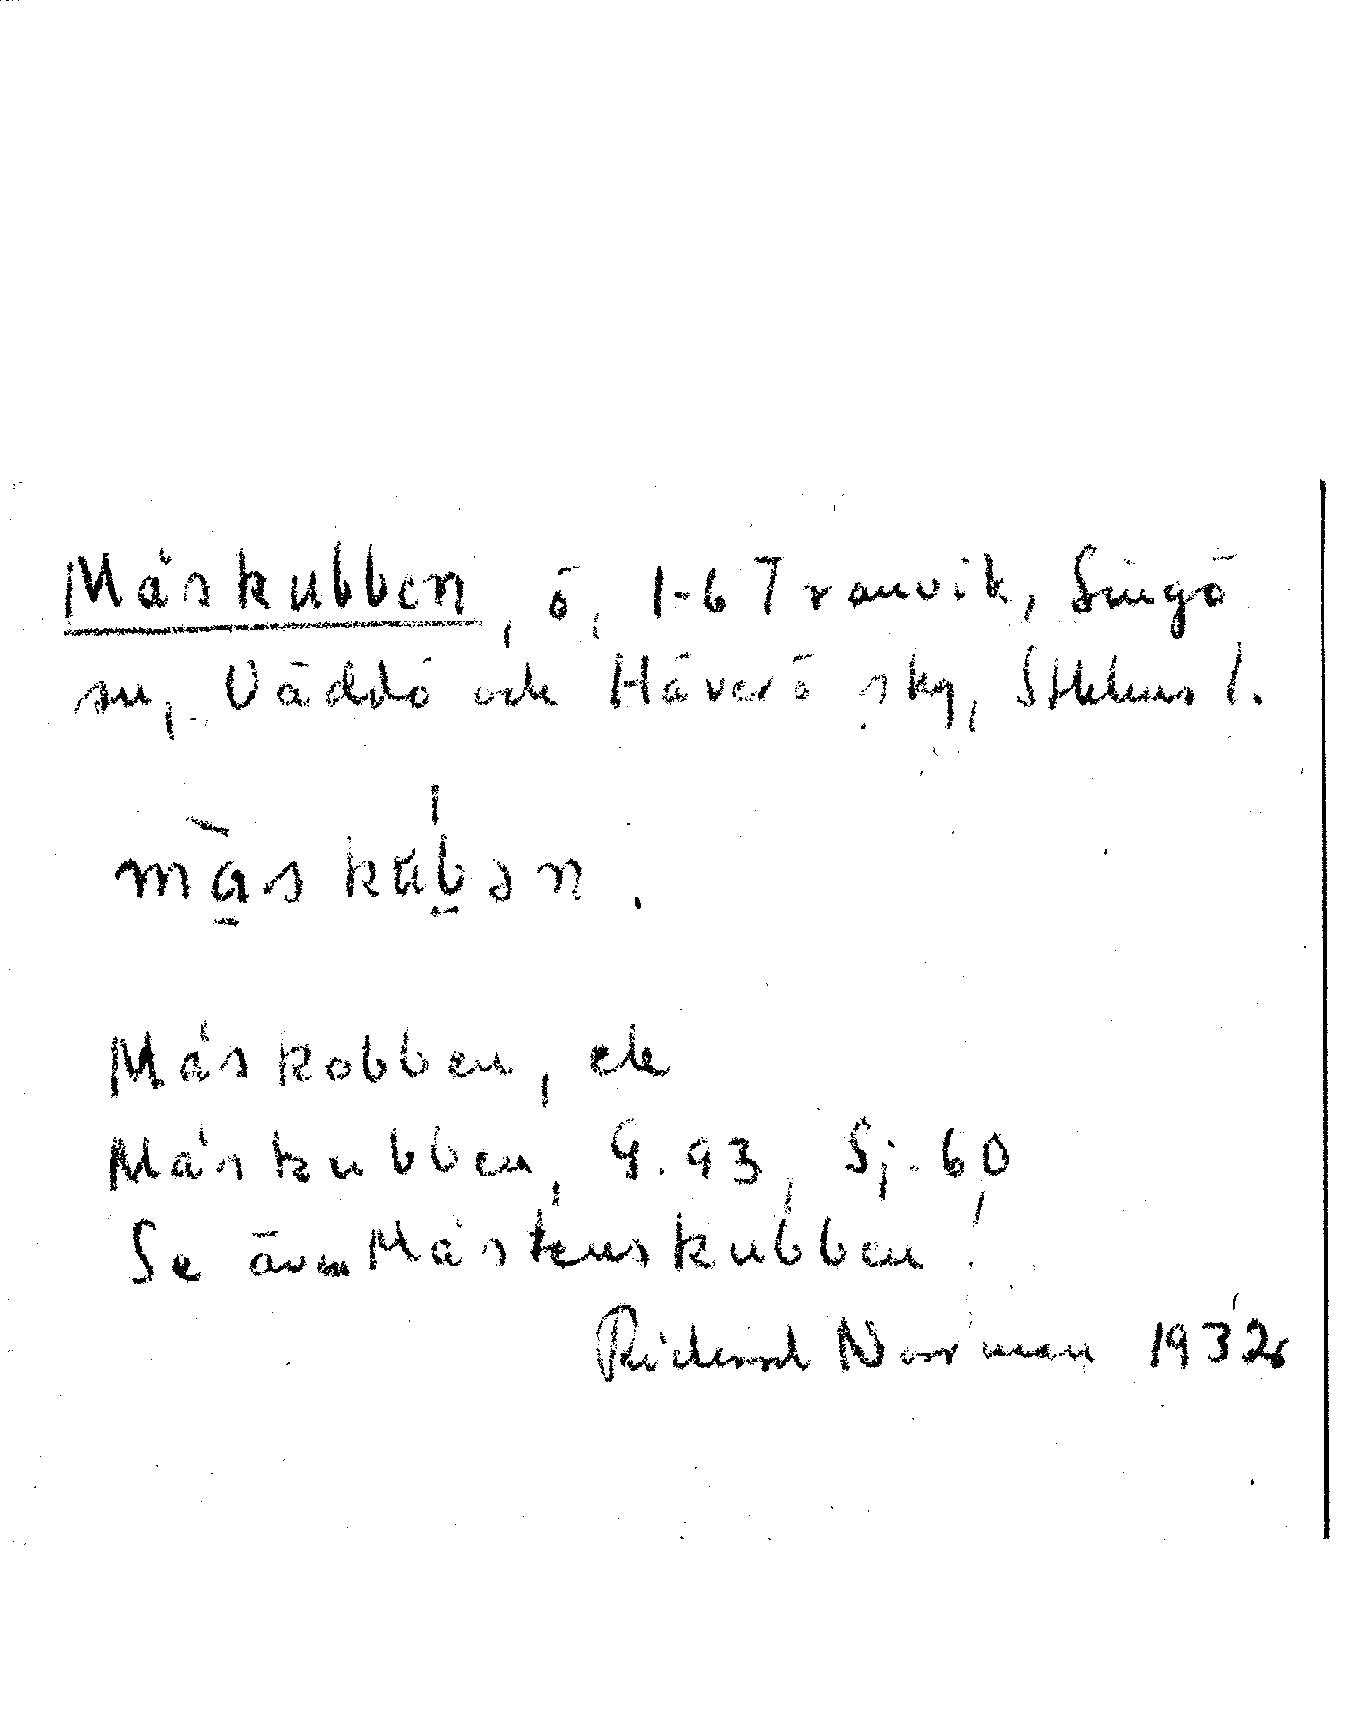 Måskubben, ö, 1-6 Tranvik, Singö
sn, Väddö och Häverö skg, Sthlms l.
màskubən.
Måskobben, ek
Måskubben, G. 93, Sj. 60
Se även Måstenskubben!
Richard Norrman 1932